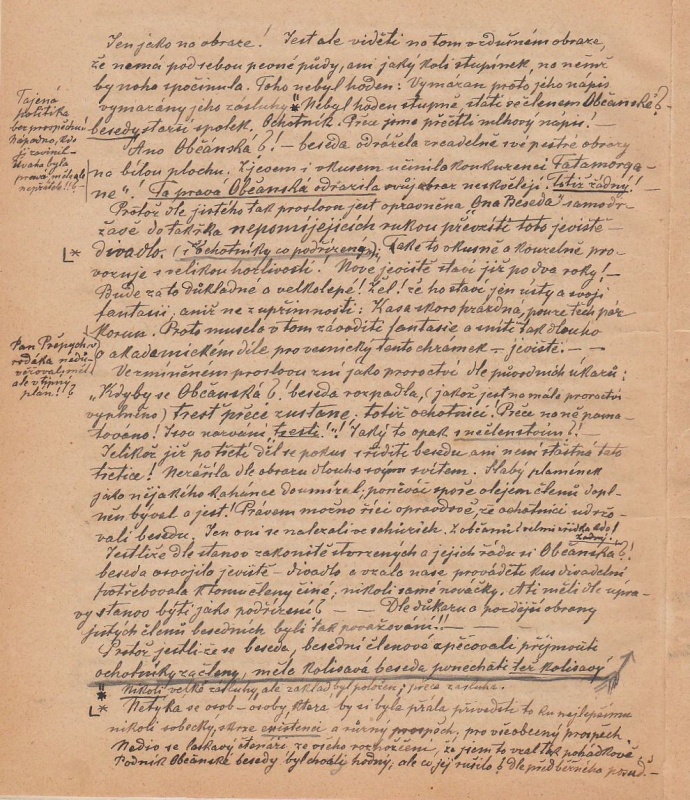 Jen jako na obraze! Jest ale viděti na tom vzdušném obraze,
že nemá pod sebou pevné půdy, ani jaký koli stupínek, na němž
by noho spočinula. Toho nebyl hoden: Vymazán proto jeho nápis
vymazány jeho zásluhy Nebyl hoden stupně, státi se členem Občanské?-
besedy starší spolek. Ochotník. Přece jsme přečtli mlhový nápis!-
Ano Občánská?!- beseda odrážela zrcadelně své pestré obrazy
na bílou plochu. Zjesem i vkusem učinila konkurenci Fatamorga-
ně"! Ta pravá Občánska odrazila svůj obraz neskvělejí. Totiž žádný!
Protož dle jistého tak proslovu jest oprávněna „Ona Beseda" samodr-
žavě do takřka nepomíjejících rukou převzíti toto jeviště-
divadlo. (i Ochotníky co podřízeny). Také to vkusně a kouzelně pro-
vozuje s velikou horlivostí. Nové jeviště staví již po dva roky!-
Bude za to důkladné a velkolepé! Žel! že ho staví jen ústy a svojí
fantasií, aniž ne z upřímnosti: Kasa skoro prázdná, pouze těch pár
korun. Proto musela v tom závoditi fantasie a sníti tak dlouho
o akademickém díle pro vesnický tento chrámek - jeviště. - -
Ve zmíněném proslovu zní jako proroctví dle původních úkazů:
„Kdyby se Občánská?! beseda rozpadla, (jakož jest na mále proroctví
vyplněno) trest přece zůstane: totiž ochotníci. Přece na ně pama-
továno! Jsou nazváni tresti."! Jaký to opak s nečlenstvím?!-
Jelikož již po třetí děl se pokus zříditi besedu ani není šťastná tato
tretice! Nezářila dle obrazu dlouho svým svitem. Slabý plamínek
jako nějakého kahánce doumíral; poněvač spoře olejem členů dopl-
něn býval a jest! Právem možno říci opravdově, že ochotníci udržo-
vali besedu. Jen oni se nalezali ve schůzích. Z občanů (velmi zřídka kdo!
žádný.
Jestliže dle stanov zákonitě stvrzených a jejich řádu si Občánská?!
beseda osvojila jeviště - divadlo a vzala nase prováděti kus divadelní
potřebovala k tomu členy činé, nikoli samé nováčky. A ti měli dle úpra-
vy stanov býti jako podřízení? - - Dle důkazu a pozdější obrany
jistých členů besedních byli tak považováni!!- -
Protož jestli že se beseda, besední členové zpěcovali příjmouti
ochotníky za členy, měla kolisavá beseda ponechati též kolisavý
Nikoli velké zásluhy, ale základ byl položen; přece zásluha.
L* Netýka se osob-osoby, ktera by si byla přála přivedsti to ku nejlepšímu
nikoli sobecký, skrze existenci a různý prospěch, pro všeobecný prospěch
Nediv se laskavý čtenáři, ze vseho rozhořčení, že jsem to vzal tak pohádkově
Podnik Občánské besedy byl chvály hodný, ale co jej rušilo? Dle předběžného
Tajená
politika
bez prospěchu
Nápadno, kdo
ji zavinil-
Snaha byla
pravá měla ale
nepřítele!!?-
L*
Pan Přepych
rodáka nedů-
věřoval, měl
ale vtipný
plán!!?